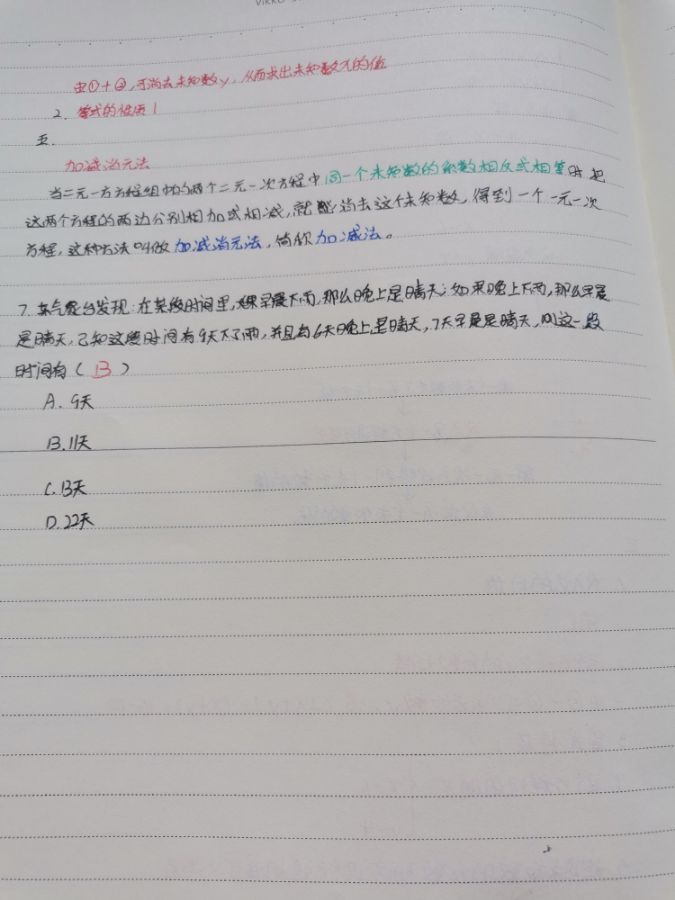 由①+②,可消去未知数y,从而求出未知数x的值
2. 等式的性质1
五.
加减消元法
当二元一方方程组中的两个二元一次方程中同一个未知数的系数相反或相等时,把
这两个方程的两边分别相加或相减,就能消去这个未知数,得到一个一元一次
方程,这种方法叫做加减消元法,简称加减法。
7. 某气象台发现:在某段时间里,如果早晨下雨,那么晚上是晴天;如果晚上下雨,那么早晨
是晴天,已知这段时间有9天下了雨,并且有6天晚上是晴天,7天早晨是晴天,则这一段
时间有(B)
A. 9天
B. 11天
C. 13天
D. 22天